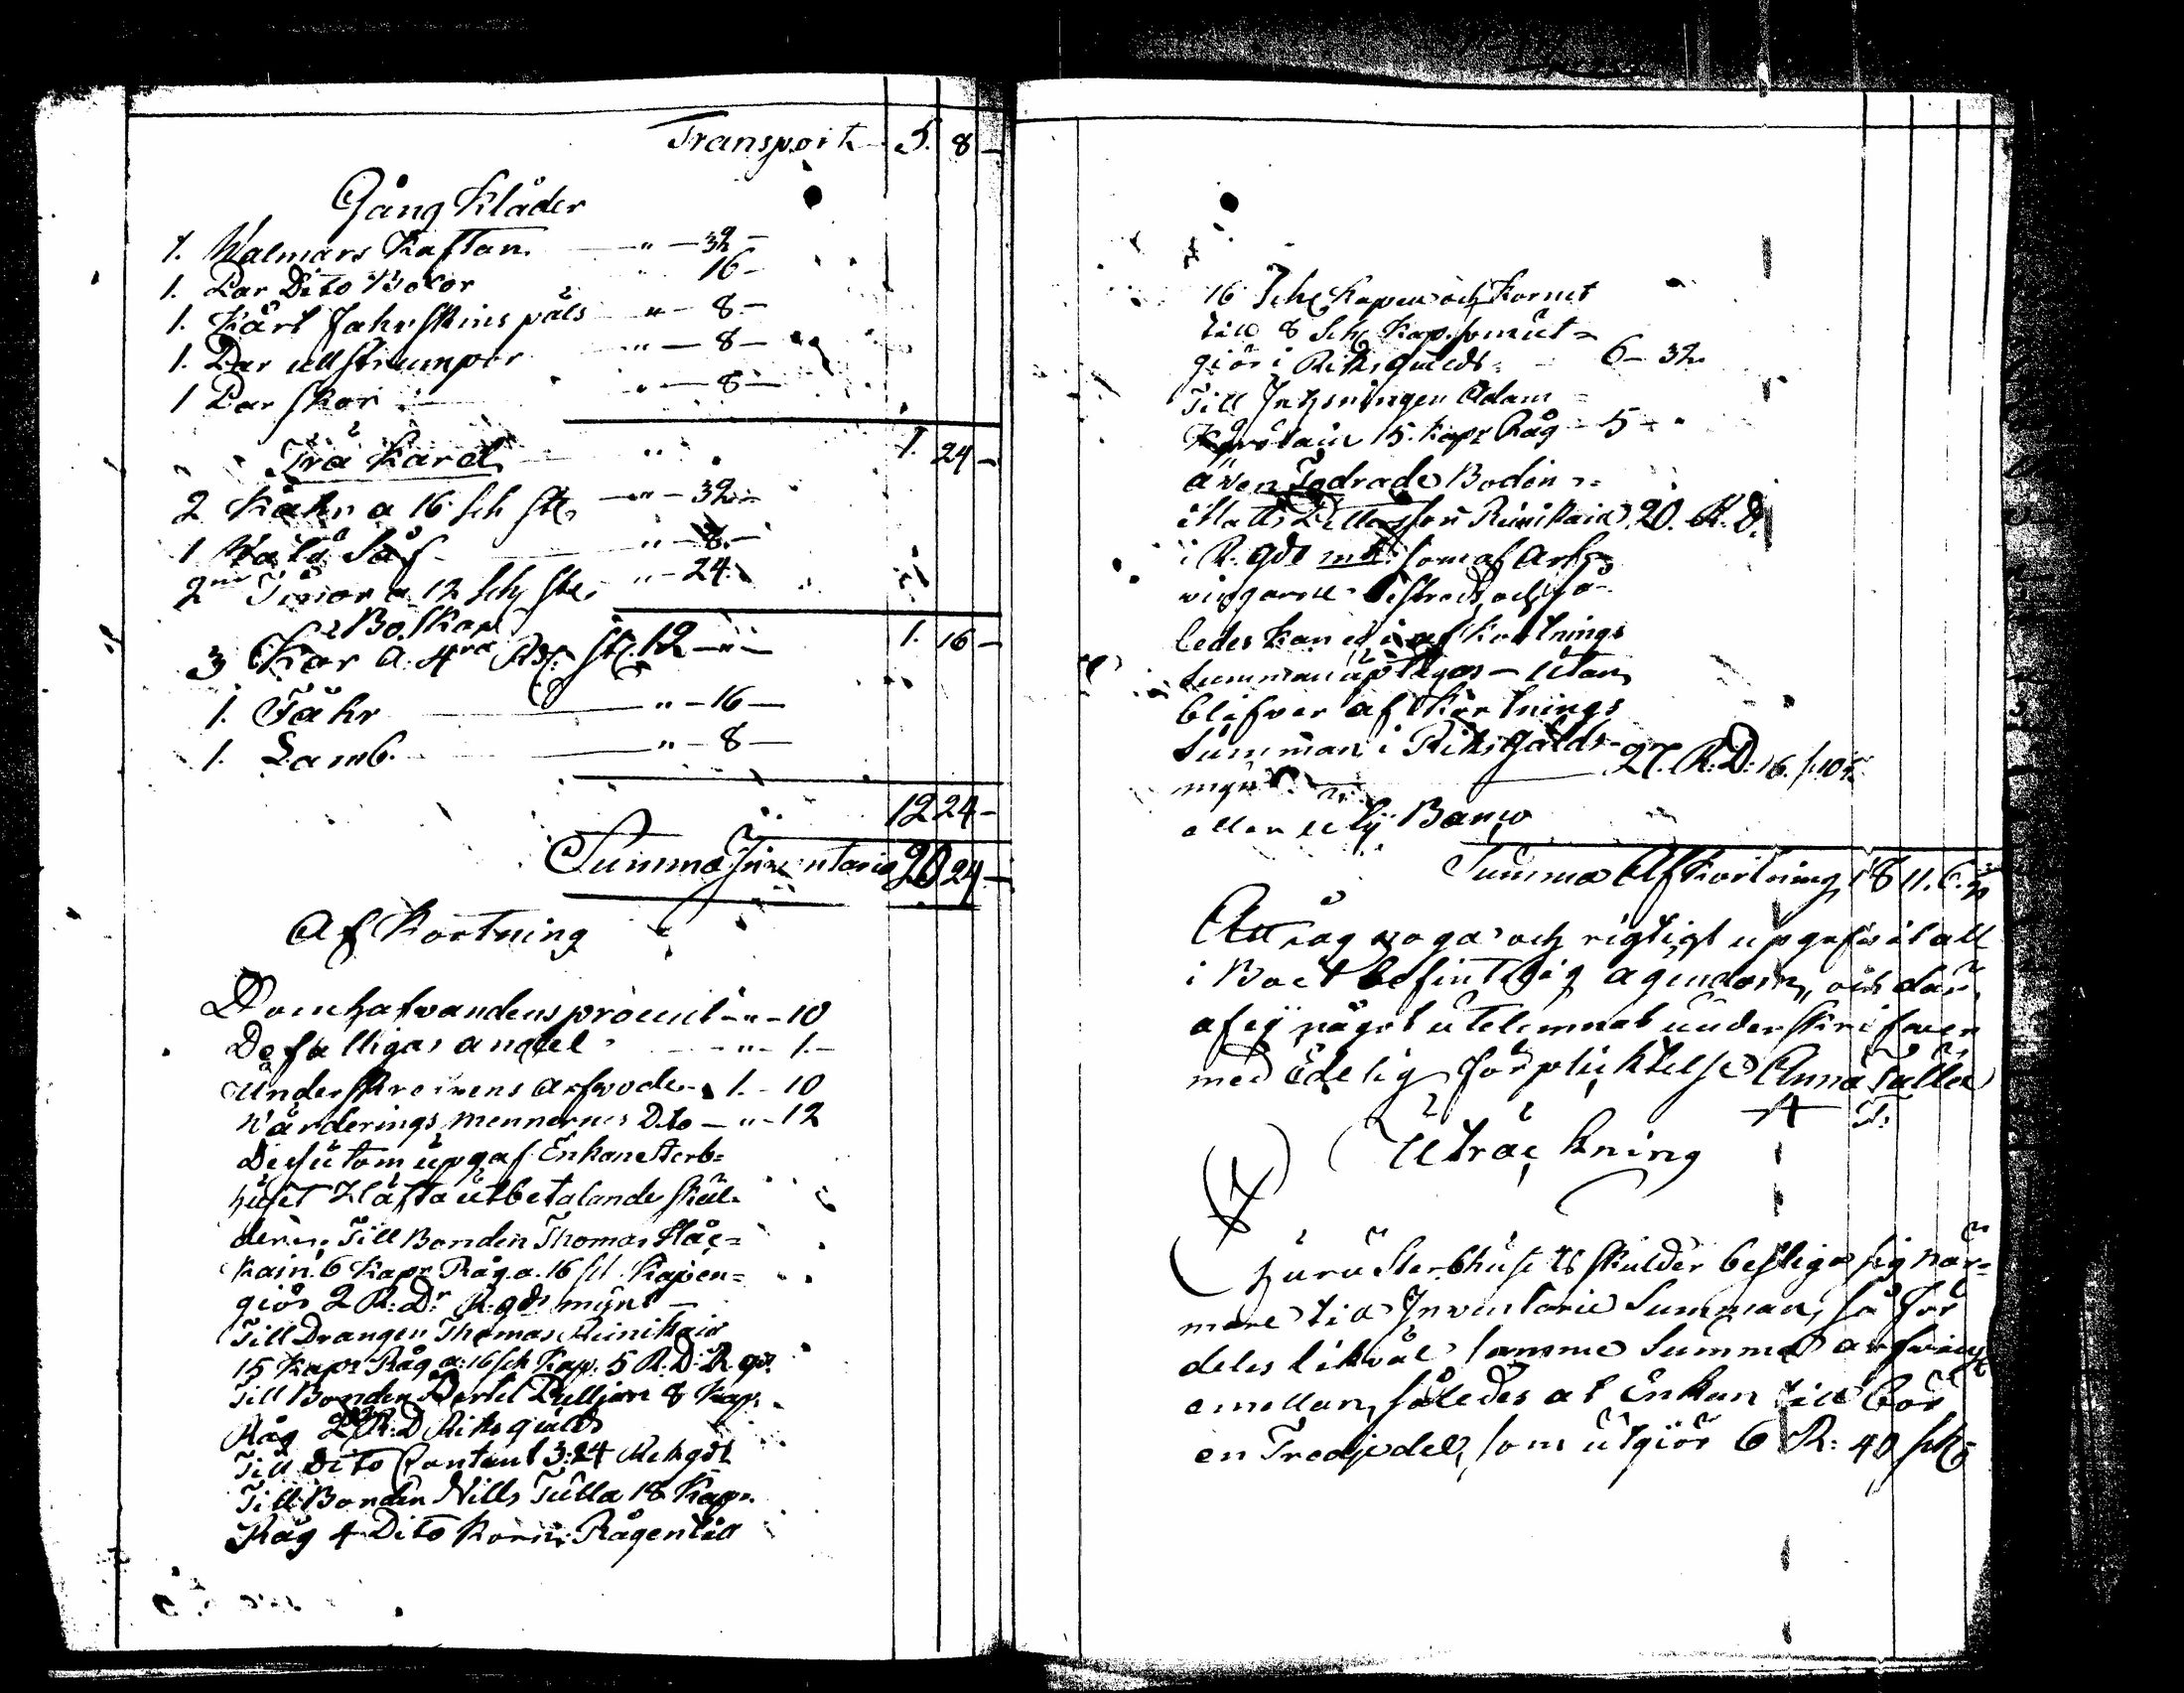 Transport 5. 8 —
Gång Kläder
1. Walmars Kaftan. — " — 32 —
1. Par Dito Boxor " 16 —
1. Kårt fahrskins päls — " — 8 —
1. Par ullstrumpor " — 8 —
1 Par skor — " — 8 —
Trä Karel " 1. 24 —
2 Kåhr a 16 sch st. — " — 32 —
1 Så — " — 8 —
2 a 12 sch st. " — 24.
Boskap 1. 16 —
3 Kor a. 4ra Rd. st. 12 — " —
1. Fåhr — " — 16 —
1. Lamb. — " — 8 —
12 24 —
Summa Inventarie 20 24 —
Af Kortning
procent — " — 10
De fattigas andel — " — 1. —
Underskrifwens arfwode — 1. — 10
Wärderings mennernes Dito — " — 12
Dessutom upgaf Enkan Sterb=
huset häfta utbetalande skul=
der: Till Bonden Thomas
6 Kapr Råg a. 16 sch. Kapen=
giör 2 R:Dr R.gds mynt —
Till Drangen Thomas
15 Kapr Råg a: 16 sch Kap. 5 R.D. R.gs.
Till Bonden Bertel 8 Kap.
Råg 2 R:D Riksgialds
Till Dito Contant 3:24 Riksgds
Till Bonden Nills Tulla 18 Kapr.
Råg 4 Dito Korn: Rågen till
16 sch Kapen och Kornet
till 8 sch Kap. som ut=
giör i Riksgialds — 6 — 32
Till Inhysningen Adam
15. Kapr Råg — 5 — "
även Fodrade Bodin
Matts 20. R. D.
i R.gds mt. som af Arf=
wingarne och så=
ledes kan ej i afkortnings
summan uptagas — utan
blifwer afkortnings
Summan i Riksgialds=
mynt — 27. R:D: 16. s. 10 r.
eller uti Banco
Summa Afkortning 18 11. 6.
At jag noga och rigtigt upgifwit all
i Boet befintelig ägendom, och där
af ej något utelemnat underskrifwer
med Edelig förplicktelse Anna Tulla
T.
Uträckning
huru Sterbhusets skulder bestiga sig när=
mare till Inventarie Summan, så för
deles likväl samme Summa arfwing
emellan, således at Enkan till bör
en Tredjedel, som utgiör 6 R: 40 sk